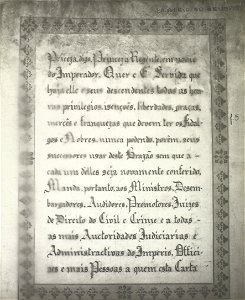 Princeza, digo, Princeza Regente, em nome
do Imperador, Quer e É Servida que
haja elle e seus descendentes todas as hon-
ras privilegios, isenções, liberdades, graças,
mercês e franquezas que devem ter os Fidal-
gos e Nobres, nunca podendo, porém, seus
successores usar deste Brazão sem que a
cada um delles seja novamente conferido.
Manda, portanto, aos Ministros, Desem-
bargadores, Auditores, Promotores, Juizes
de Direito do Civil e Crime e a todas
as mais Auctoridades Judiciarias e
Administractivas do Imperio, Offici-
aes e mais Pessoas a quem esta Carta